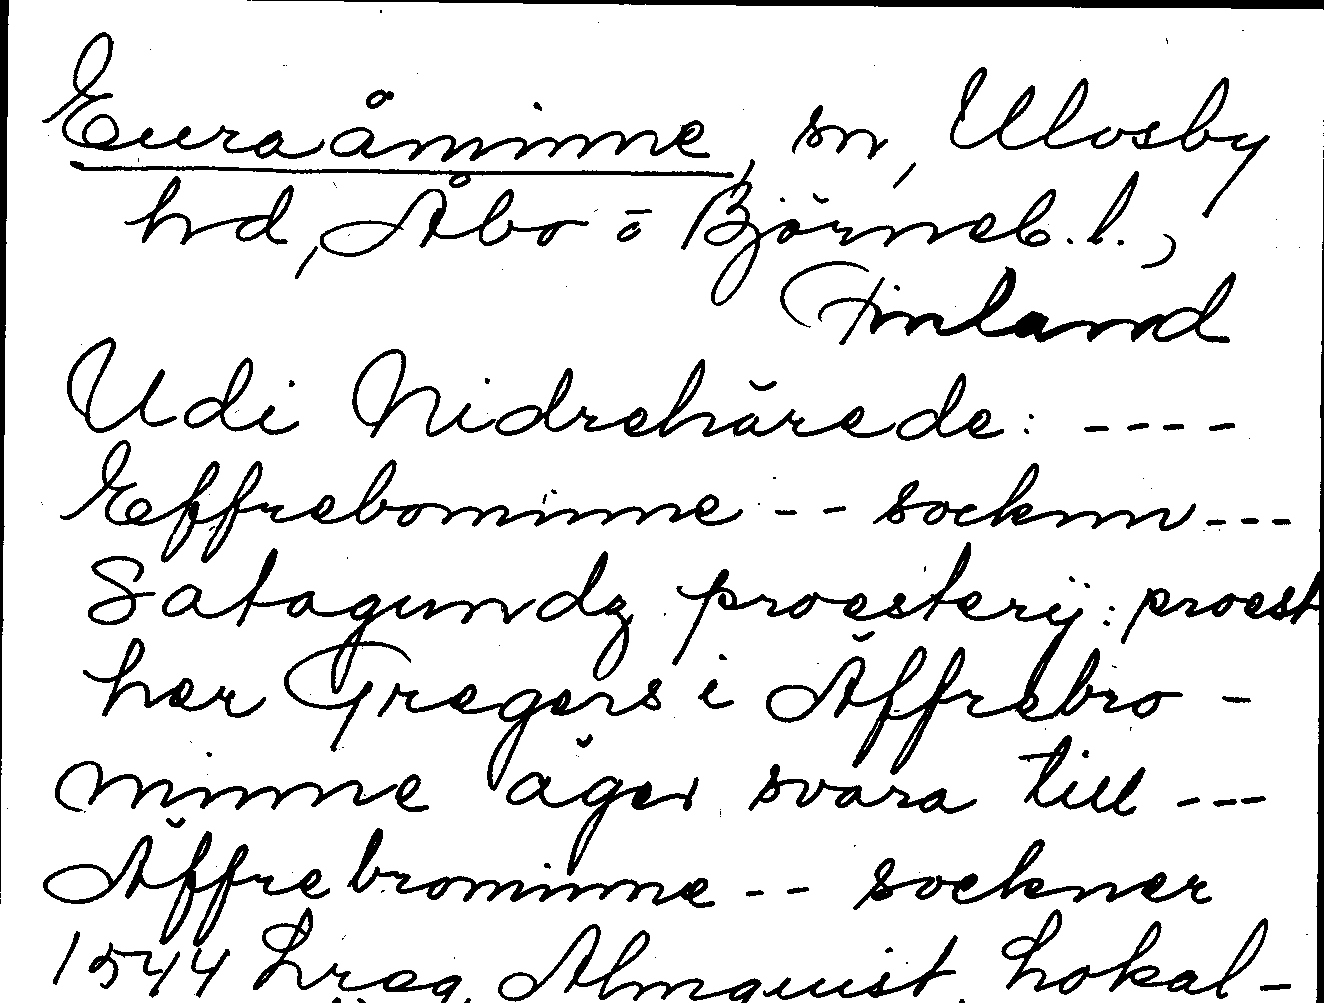 Euraåminne, sn, Ulvsby
hd, Åbo o Björneb. l.,
Finland
Udi Nidrehärede: ----
Effrebominne -- socknn ---
Satagundz proesterij: proest
her Gregers i Äffrebro-
minne äger svara till ---
Äffrebrominne -- sockner
1544 Lreg. Almquist, Lokal-